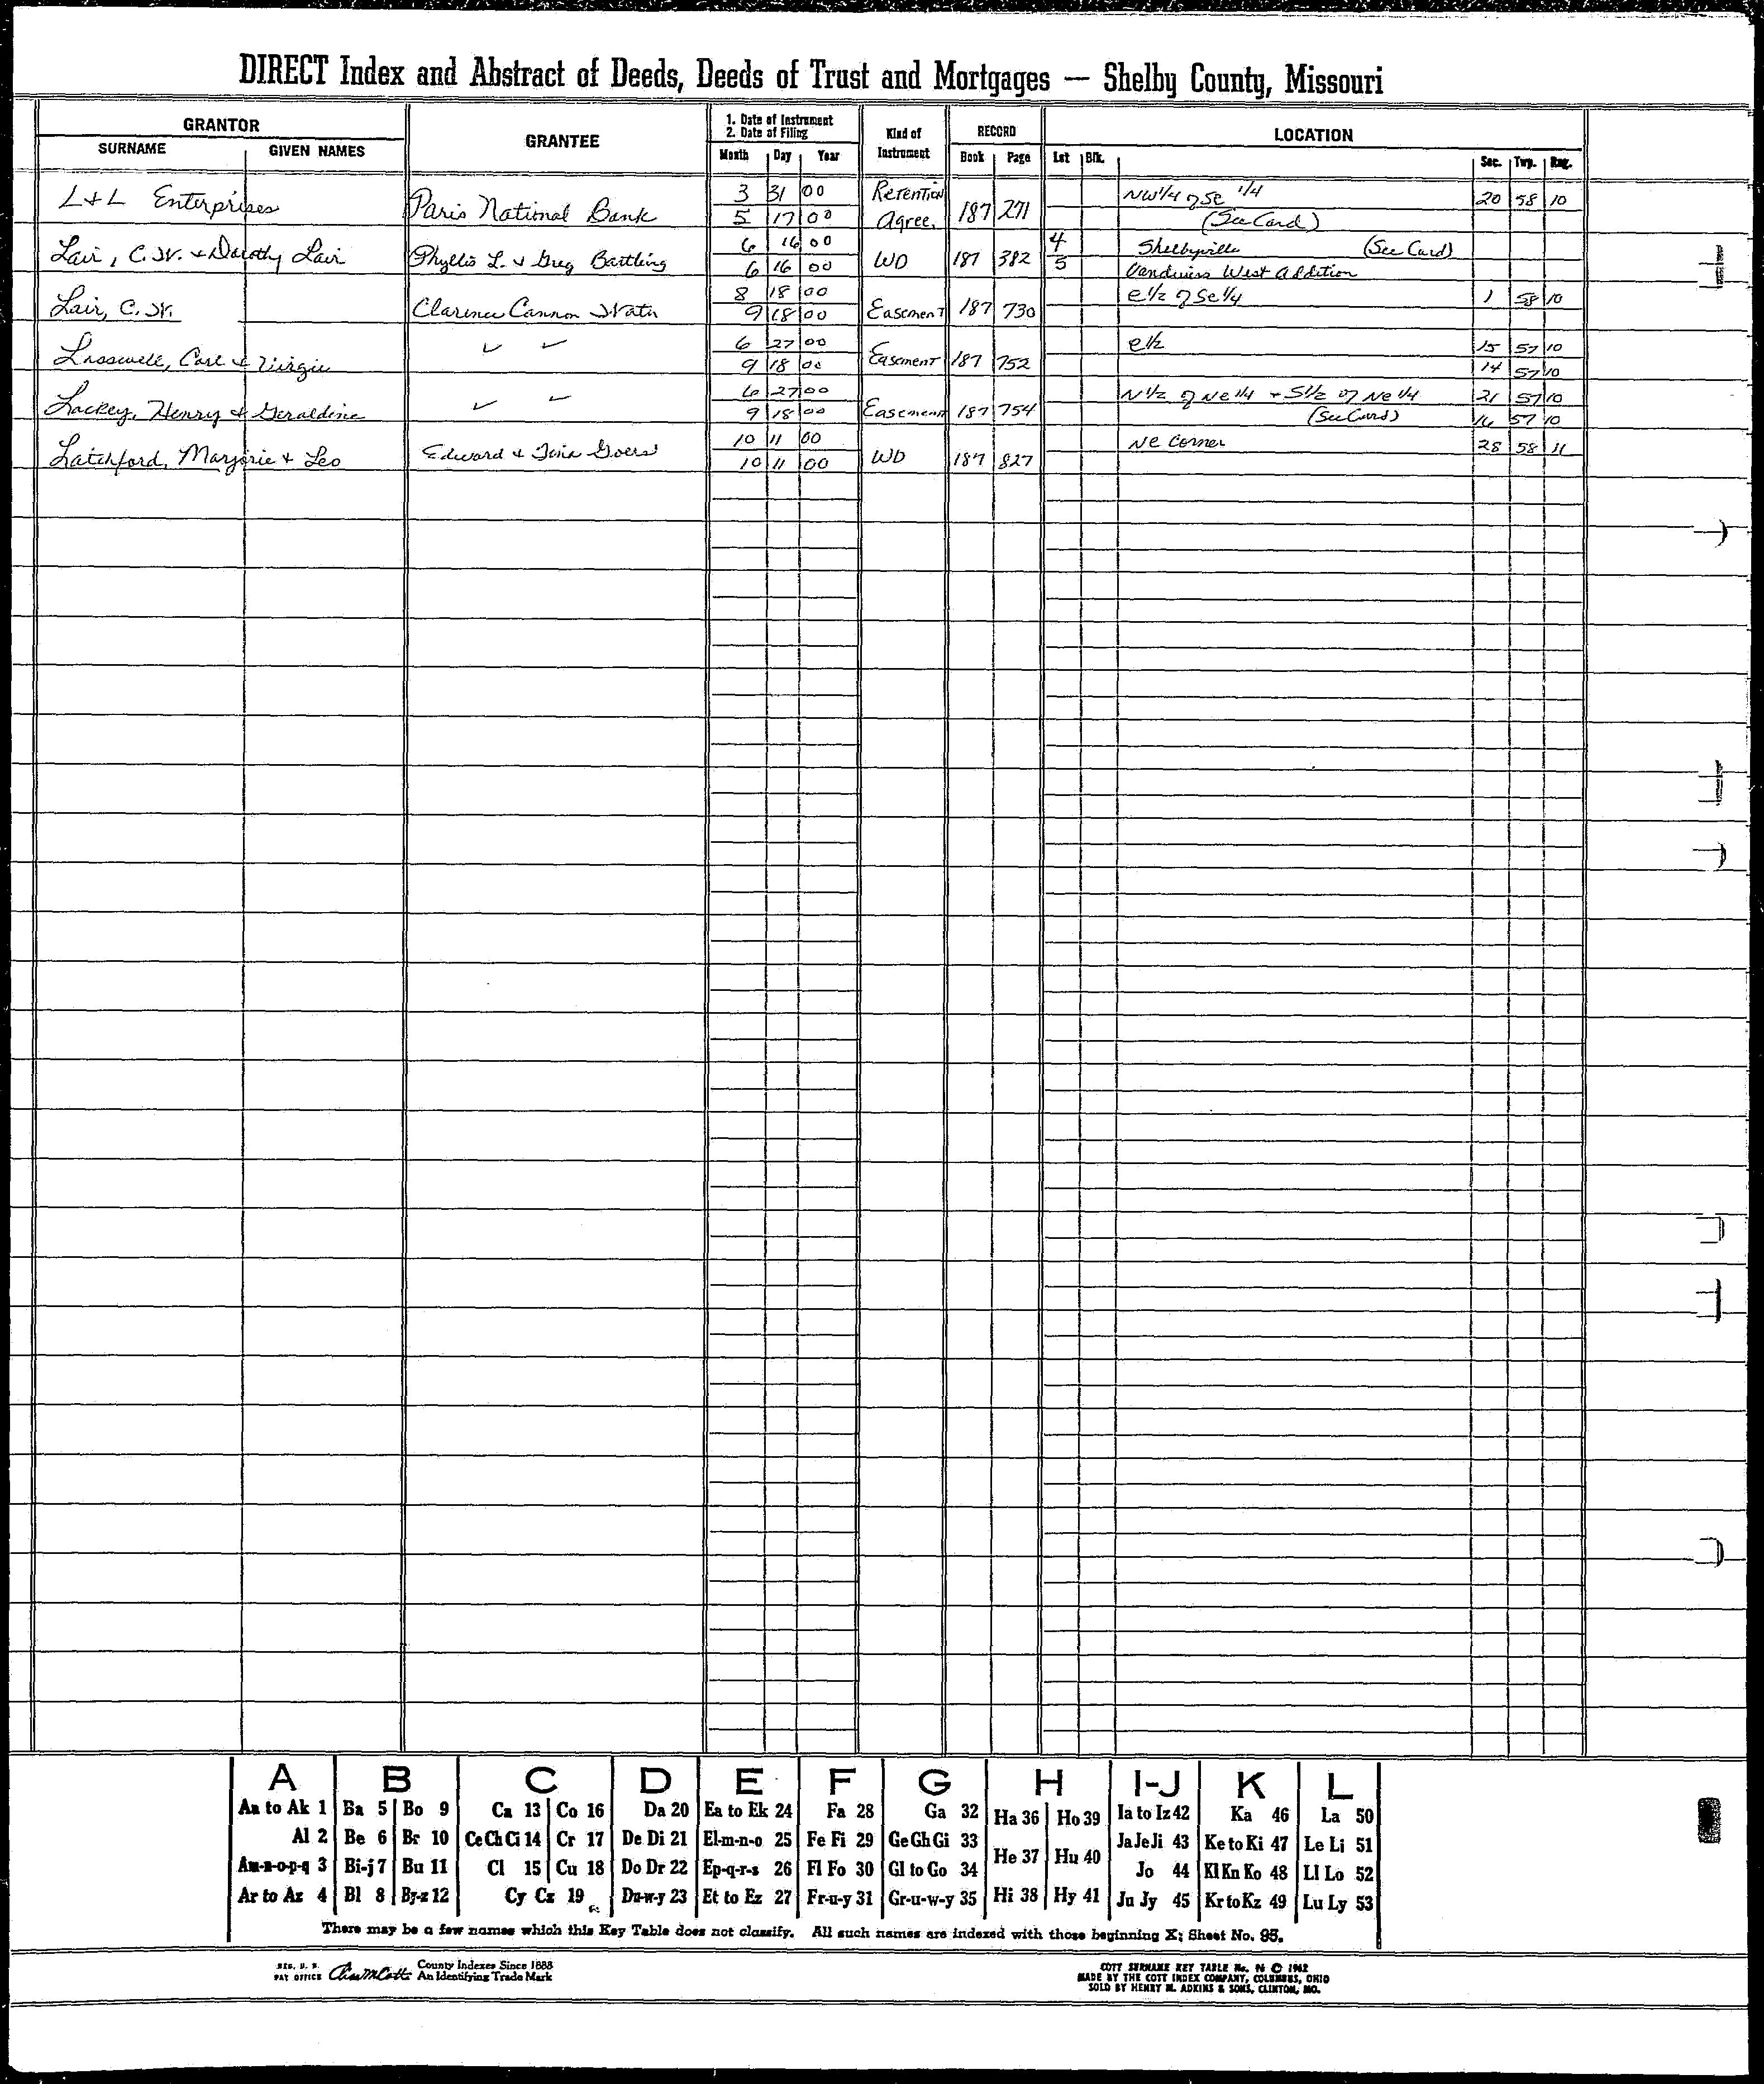 DIRECT Index and Abstract of Deeds, Deeds of Trust and Mortgages — Shelby County, Missouri
GRANTOR
SURNAME GIVEN NAMES
GRANTEE
1. Date of Instrument
2. Date of Filing
Month Day Year
Kind of
Instrument
RECORD
Book Page
LOCATION
Lot Blk. Sec. Twp. Rng.
L+L Enterprises Paris National Bank 3 31 00 Retention 187 271 NW 1/4 of Se 1/4 20 58 10
5 17 00 Agree. (See Card)
Lair, C.W. + Dorothy Lair Phyllis L. + Greg Bartling 6 16 00 WD 187 382 4 Shelbyville (See Card)
6 16 00 5 Vandivers West Addition
Lair, C.W. Clarence Cannon Watr 8 18 00 Easement 187 730 e 1/2 of Se 1/4 1 58 10
9 18 00
Lasswell, Carl & Virgie ✓ ✓ 6 27 00 Easement 187 752 e 1/2 15 57 10
9 18 00 14 57 10
Lackey, Henry & Geraldine ✓ ✓ 6 27 00 Easement 187 754 N 1/2 of Ne 1/4 + S 1/2 of Ne 1/4 21 57 10
9 18 00 (See Card) 16 57 10
Latchford, Marjorie + Leo Edward & Tina Goers 10 11 00 WD 187 827 Ne Corner 28 58 11
10 11 00
A B C D E F G H I-J K L
Aa to Ak 1 Ba 5 Bo 9 Ca 13 Co 16 Da 20 Ea to Ek 24 Fa 28 Ga 32 Ha 36 Ho 39 Ia to Iz 42 Ka 46 La 50
Al 2 Be 6 Br 10 Ce Ch Ci 14 Cr 17 De Di 21 El-m-n-o 25 Fe Fi 29 Ge Gh Gi 33 He 37 Hu 40 Ja Je Ji 43 Ke to Ki 47 Le Li 51
Am-n-o-p-q 3 Bi-j 7 Bu 11 Cl 15 Cu 18 Do Dr 22 Ep-q-r-s 26 Fl Fo 30 Gl to Go 34 Jo 44 Kl Kn Ko 48 Ll Lo 52
Ar to Az 4 Bl 8 By-z 12 Cy Cz 19 Du-w-y 23 Et to Ez 27 Fr-u-y 31 Gr-u-w-y 35 Hi 38 Hy 41 Ju Jy 45 Kr to Kz 49 Lu Ly 53
There may be a few names which this Key Table does not classify. All such names are indexed with those beginning X; Sheet No. 95.
REG. U. S. PAT OFFICE County Indexes Since 1888
An Identifying Trade Mark
COTT SURNAME KEY TABLE No. 96 © 1962
MADE BY THE COTT INDEX COMPANY, COLUMBUS, OHIO
SOLD BY HENRY M. ADKINS & SONS, CLINTON, MO.